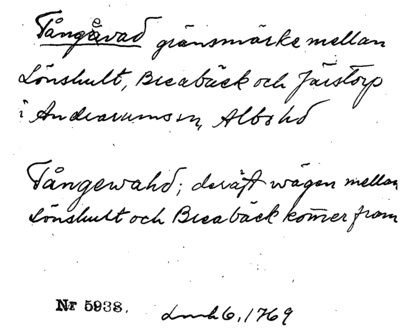 Tångåvad gränsmärke mellan
Lönshult, Breabäck och Järstorp
i Andrarums sn, Albo hd
Tångewahd; deräst wägen mellan
Lönshult och Breabäck kom̃er fram
Nr 5938. Lmh 6, 1769